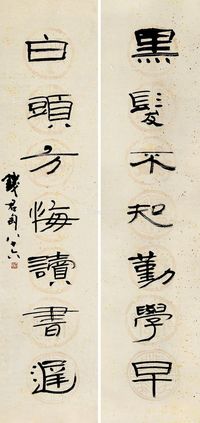 黑髮不知勤學早
白頭方悔讀書遲
錢君匋八十六